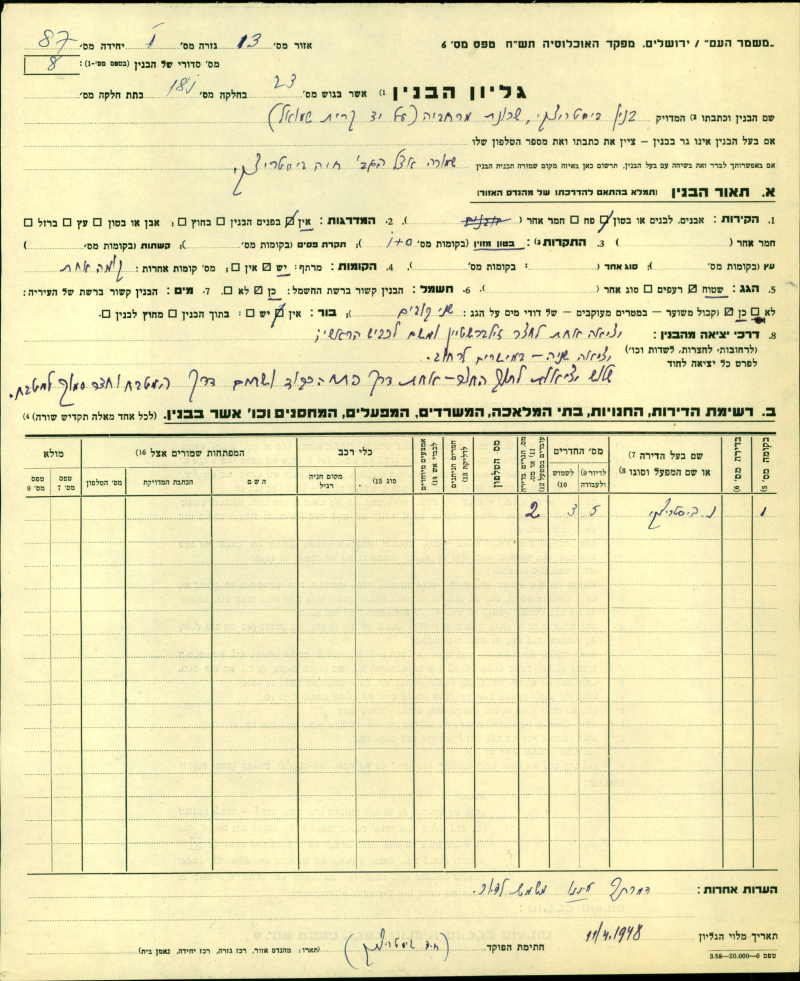 „משמר העם" / ירושלים. מפקד האוכלוסיה תש"ח טפס מס' 6
אזור מס' 13 גזרה מס' 1 יחידה מס' 87
מס' סדורי של הבנין (בטפס מס'-1): 8
גליון הבנין (1 אשר בגוש מס' 23 בחלקה מס' בתת חלקה מס'
שם הבנין וכתבתו (2 המדויק בנין ביסטריצקי, שכונת מרחביה (על יד קרית שמואל)
אם בעל הבנין אינו גר בבנין – ציין את כתבתו ואת מספר הטלפון שלו
אם באפשרותך לברר זאת בשיחה עם בעל הבנין, תרשום כאן באיזה מקום שמורה תכנית הבנין שמורה אצל הגב' חיה ביסטריצקי.
א. תאור הבנין (תמלא בהתאם להדרכתו של מהנדס האזור)
1. הקירות: אבנים, לבנים או בטון פח חמר אחר ( ). 2. המדרגות: אין בפנים הבנין בחוץ ; אבן או בטון עץ ברזל
חמר אחר ( ) 3. התקרות (3: בטון מזוין (בקומות מס' 1+0 ); תקרת פסים (בקומות מס' ); קשתות (בקומות מס'
עץ (בקומות מס' ); סוג אחר ( : בקומות מס' ). 4. הקומות: מרתף: יש אין ; מס' קומות אחרות: קומה אחת
5. הגג: שטוח רעפים סוג אחר ( ). 6. חשמל: הבנין קשור ברשת החשמל: כן לא . 7. מים: הבנין קשור ברשת של העיריה:
לא כן (קבול משוער – במטרים מעוקבים – של דודי מים על הגג: שני קובים ) בור: אין יש : בתוך הבנין מחוץ לבנין .
8. דרכי יציאה מהבנין: יציאה אחת לחצר זילברשטיין ומשם לכביש הראשי;
(לרחובות, לחצרות, לשדות וכו') יציאה שניה – במישרים לרחוב.
לפרט כל יציאה לחוד
שלוש יציאות לתוך החצר – אחת דרך פתח הכבוד ושתים דרך המטבח וחצר סמוך למטבח.
ב. רשימת הדירות, החנויות, בתי המלאכה, המשרדים, המפעלים, המחסנים וכו' אשר בבנין. (לכל אחד מאלה תקדיש שורה) (4
בקומה מס' (5
בדירה מס' (6
שם בעל הדירה (7
או שם המפעל וסוגו (8
מס' החדרים
לדיור (9 ולעבודה
לשמוש (10
מס. הגרים בדירה (11 או מס. עובדים במפעל (12
מס הטלפון
חמרים הניתנים לדליקה (13
אמצעים מיוחדים לכבוי אש (14
כלי רכב
סוג (15
מקום חניה רגיל
המפתחות שמורים אצל (16
השם
הכתבת המדויקת
מס' הטלפון
מולא
טפס מס' 7
טפס מס' 9
1 נ. ביסטריצקי 5 3 2
הערות אחרות: המרתף איננו משמש לדיור.
תאריך מלוי הגליון 11/4.1948 חתימת הפוקד (חיה ביסטריצקי) (תארו: מהנדס אזור, רכז גזרה, רכז יחידה, נאמן בית)
טפס 6–20.000–3.48